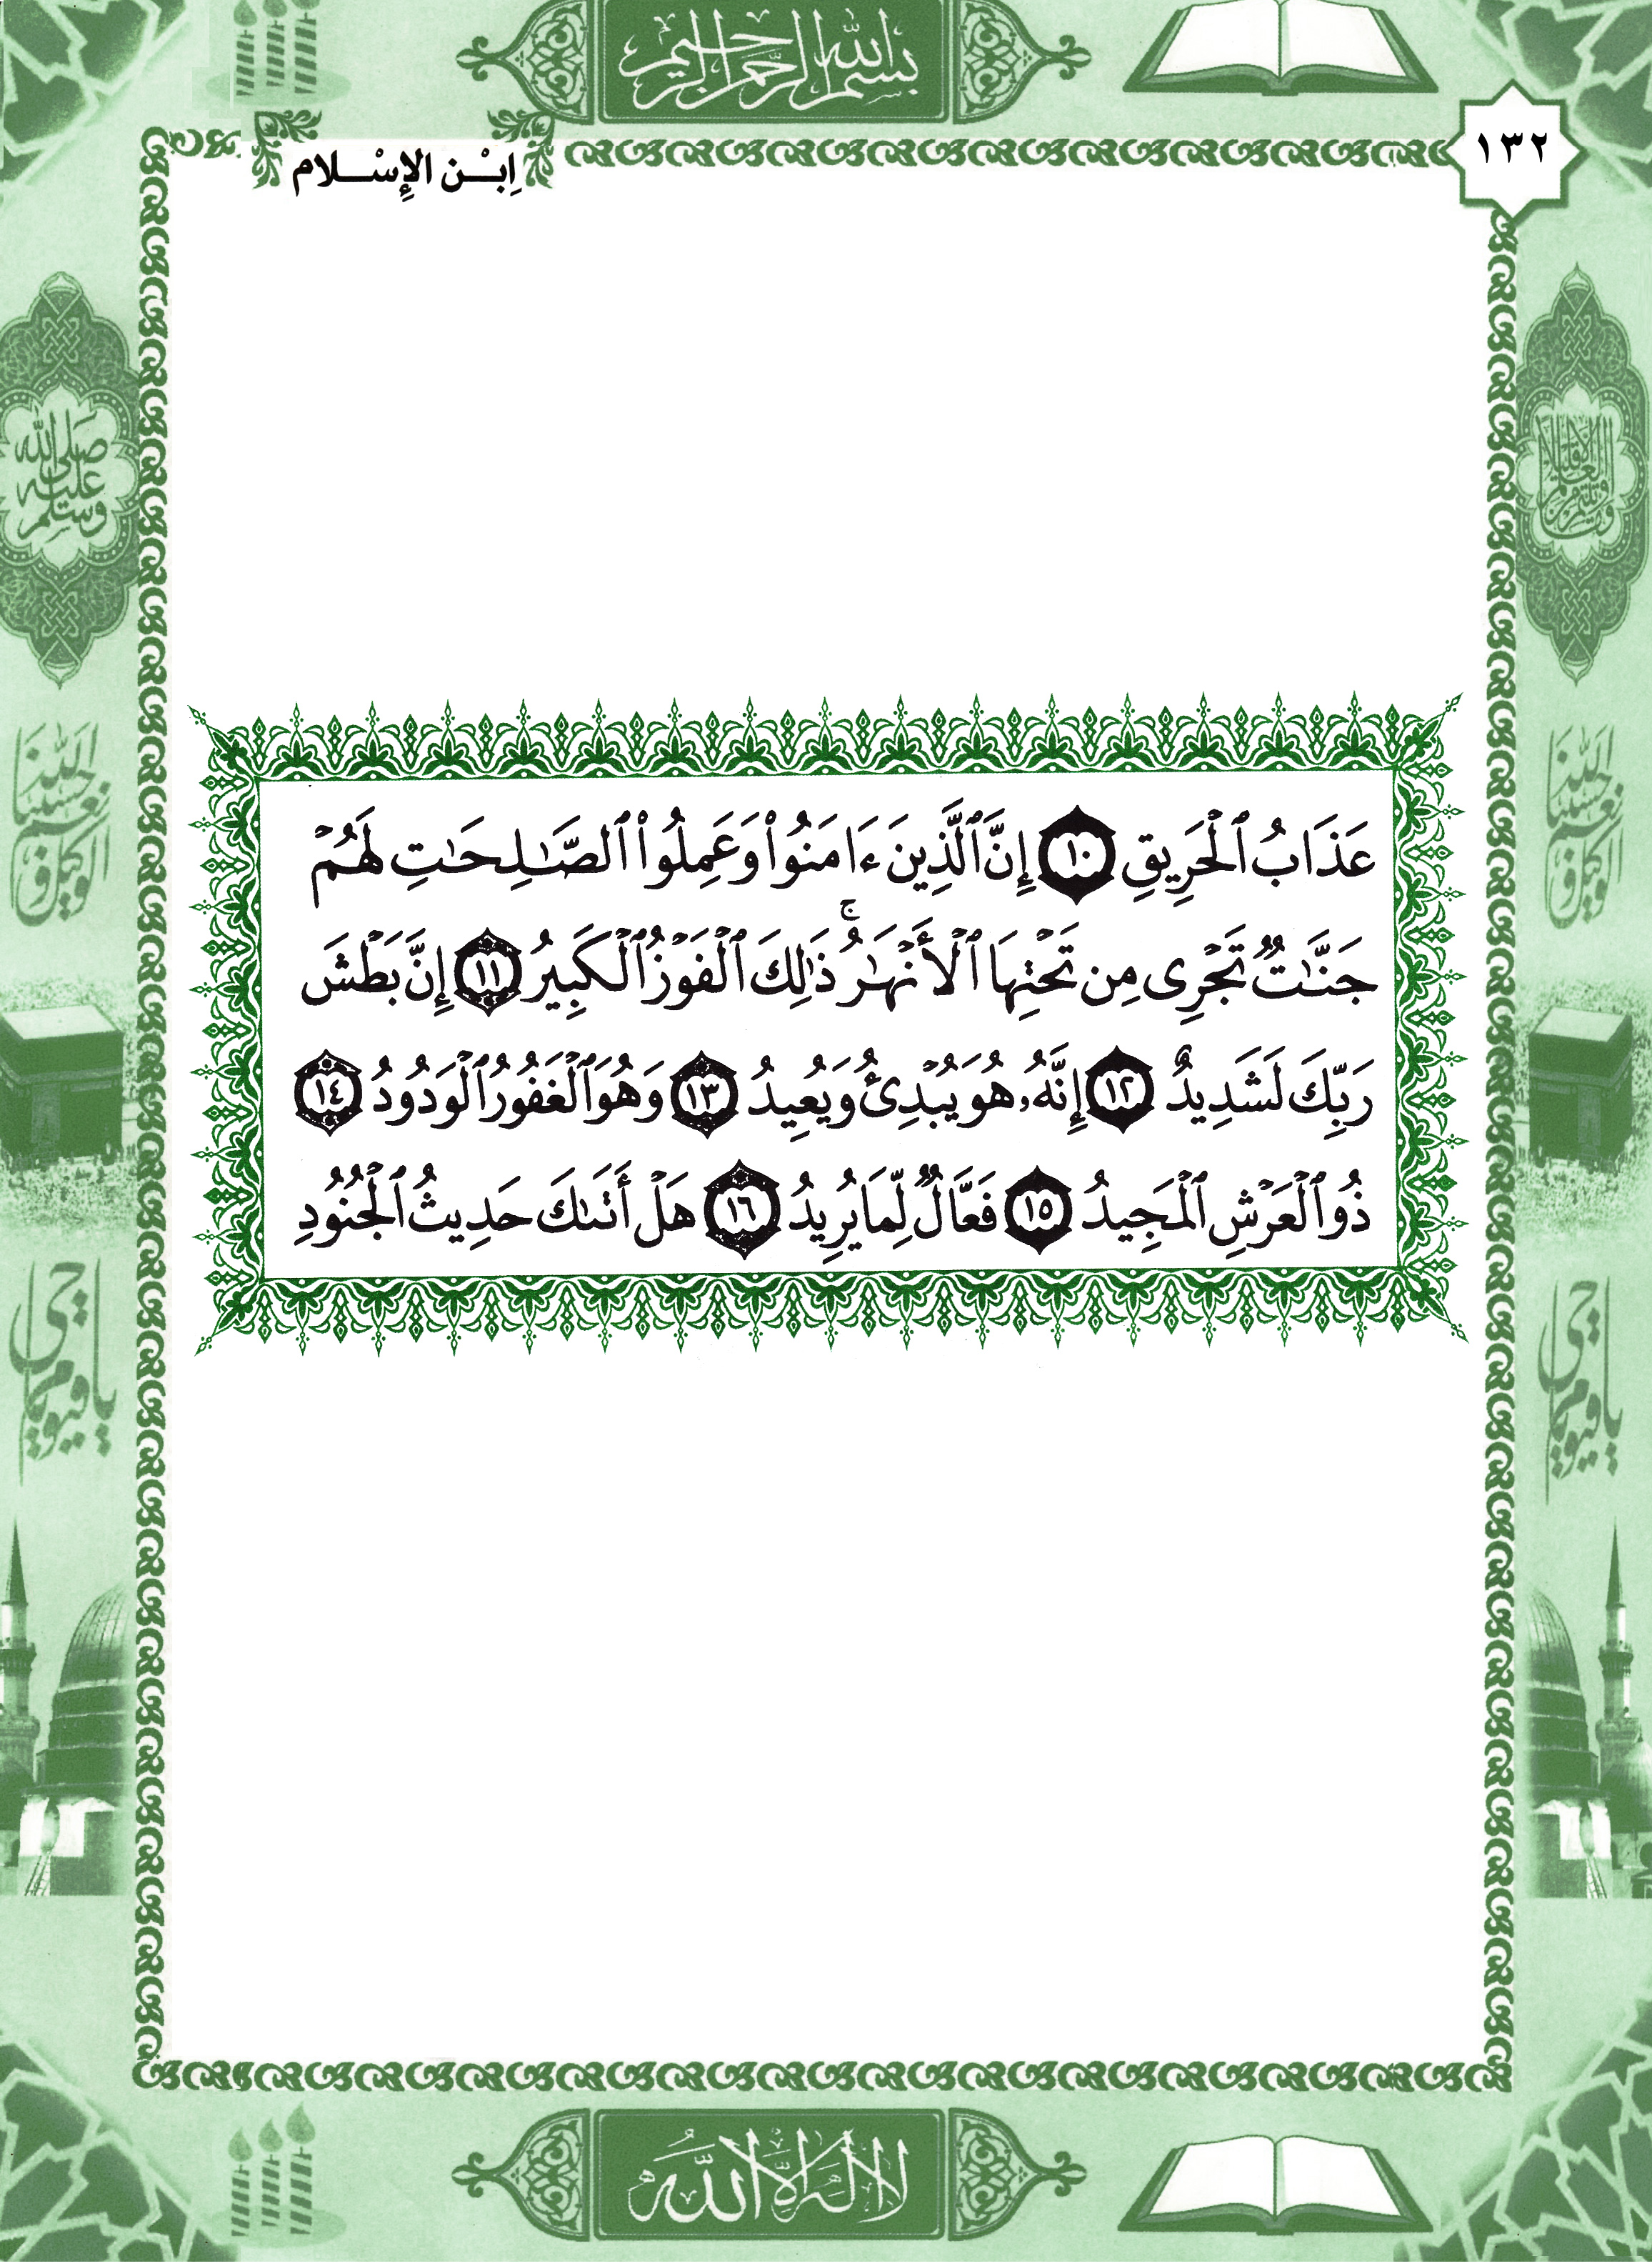 بسم الله الرحمن الرحيم
١٣٢
اِبْـن الإِسْـلام
صلى الله
عليه
وسلم
حسبنا الله
ونعم
الوكيل
حسبنا الله
ونعم
الوكيل
عَذَابُ ٱلْحَرِيقِ ١٠ إِنَّ ٱلَّذِينَ ءَامَنُوا۟ وَعَمِلُوا۟ ٱلصَّـٰلِحَـٰتِ لَهُمْ
جَنَّـٰتٌ تَجْرِى مِن تَحْتِهَا ٱلْأَنْهَـٰرُ ۚ ذَٰلِكَ ٱلْفَوْزُ ٱلْكَبِيرُ ١١ إِنَّ بَطْشَ
رَبِّكَ لَشَدِيدٌ ١٢ إِنَّهُۥ هُوَ يُبْدِئُ وَيُعِيدُ ١٣ وَهُوَ ٱلْغَفُورُ ٱلْوَدُودُ ١٤
ذُو ٱلْعَرْشِ ٱلْمَجِيدُ ١٥ فَعَّالٌ لِّمَا يُرِيدُ ١٦ هَلْ أَتَىٰكَ حَدِيثُ ٱلْجُنُودِ
يا حي
يا قيوم
يا حي
يا قيوم
لا اله الا الله